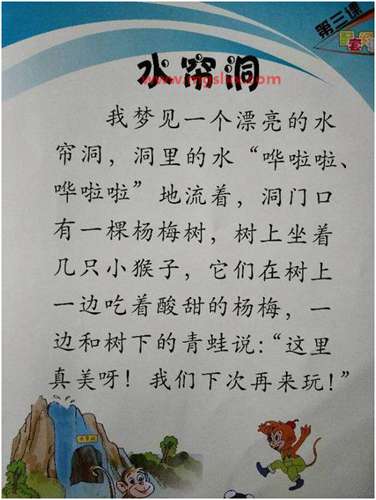 第三课
水帘洞
我梦见一个漂亮的水
帘洞，洞里的水“哗啦啦、
哗啦啦”地流着，洞门口
有一棵杨梅树，树上坐着
几只小猴子，它们在树上
一边吃着酸甜的杨梅，一
边和树下的青蛙说：“这里
真美呀！我们下次再来玩！”
水帘洞